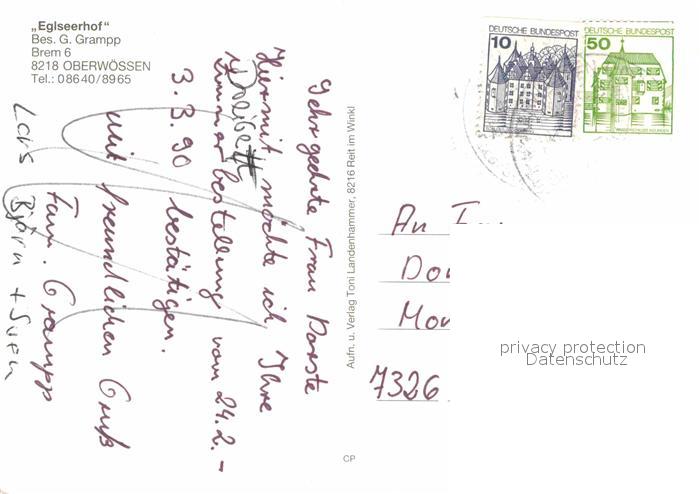 „Eglseerhof“
Bes. G. Grampp
Brem 6
8218 OBERWÖSSEN
Tel.: 08640/8965
DEUTSCHE BUNDESPOST
10
DEUTSCHE BUNDESPOST
50
Sehr geehrte Frau
Hiermit möchte ich Ihre
Dreibett
Zimmerbestellung vom 24.2.-
3.3.90 bestätigen.
mit freundlichen Gruß
Fam. Grampp
Lars Björn + Sven
Aufn. u. Verlag Toni Landenhammer, 8216 Reit im Winkl
An
Do
Mo
7326
privacy protection
Datenschutz
CP